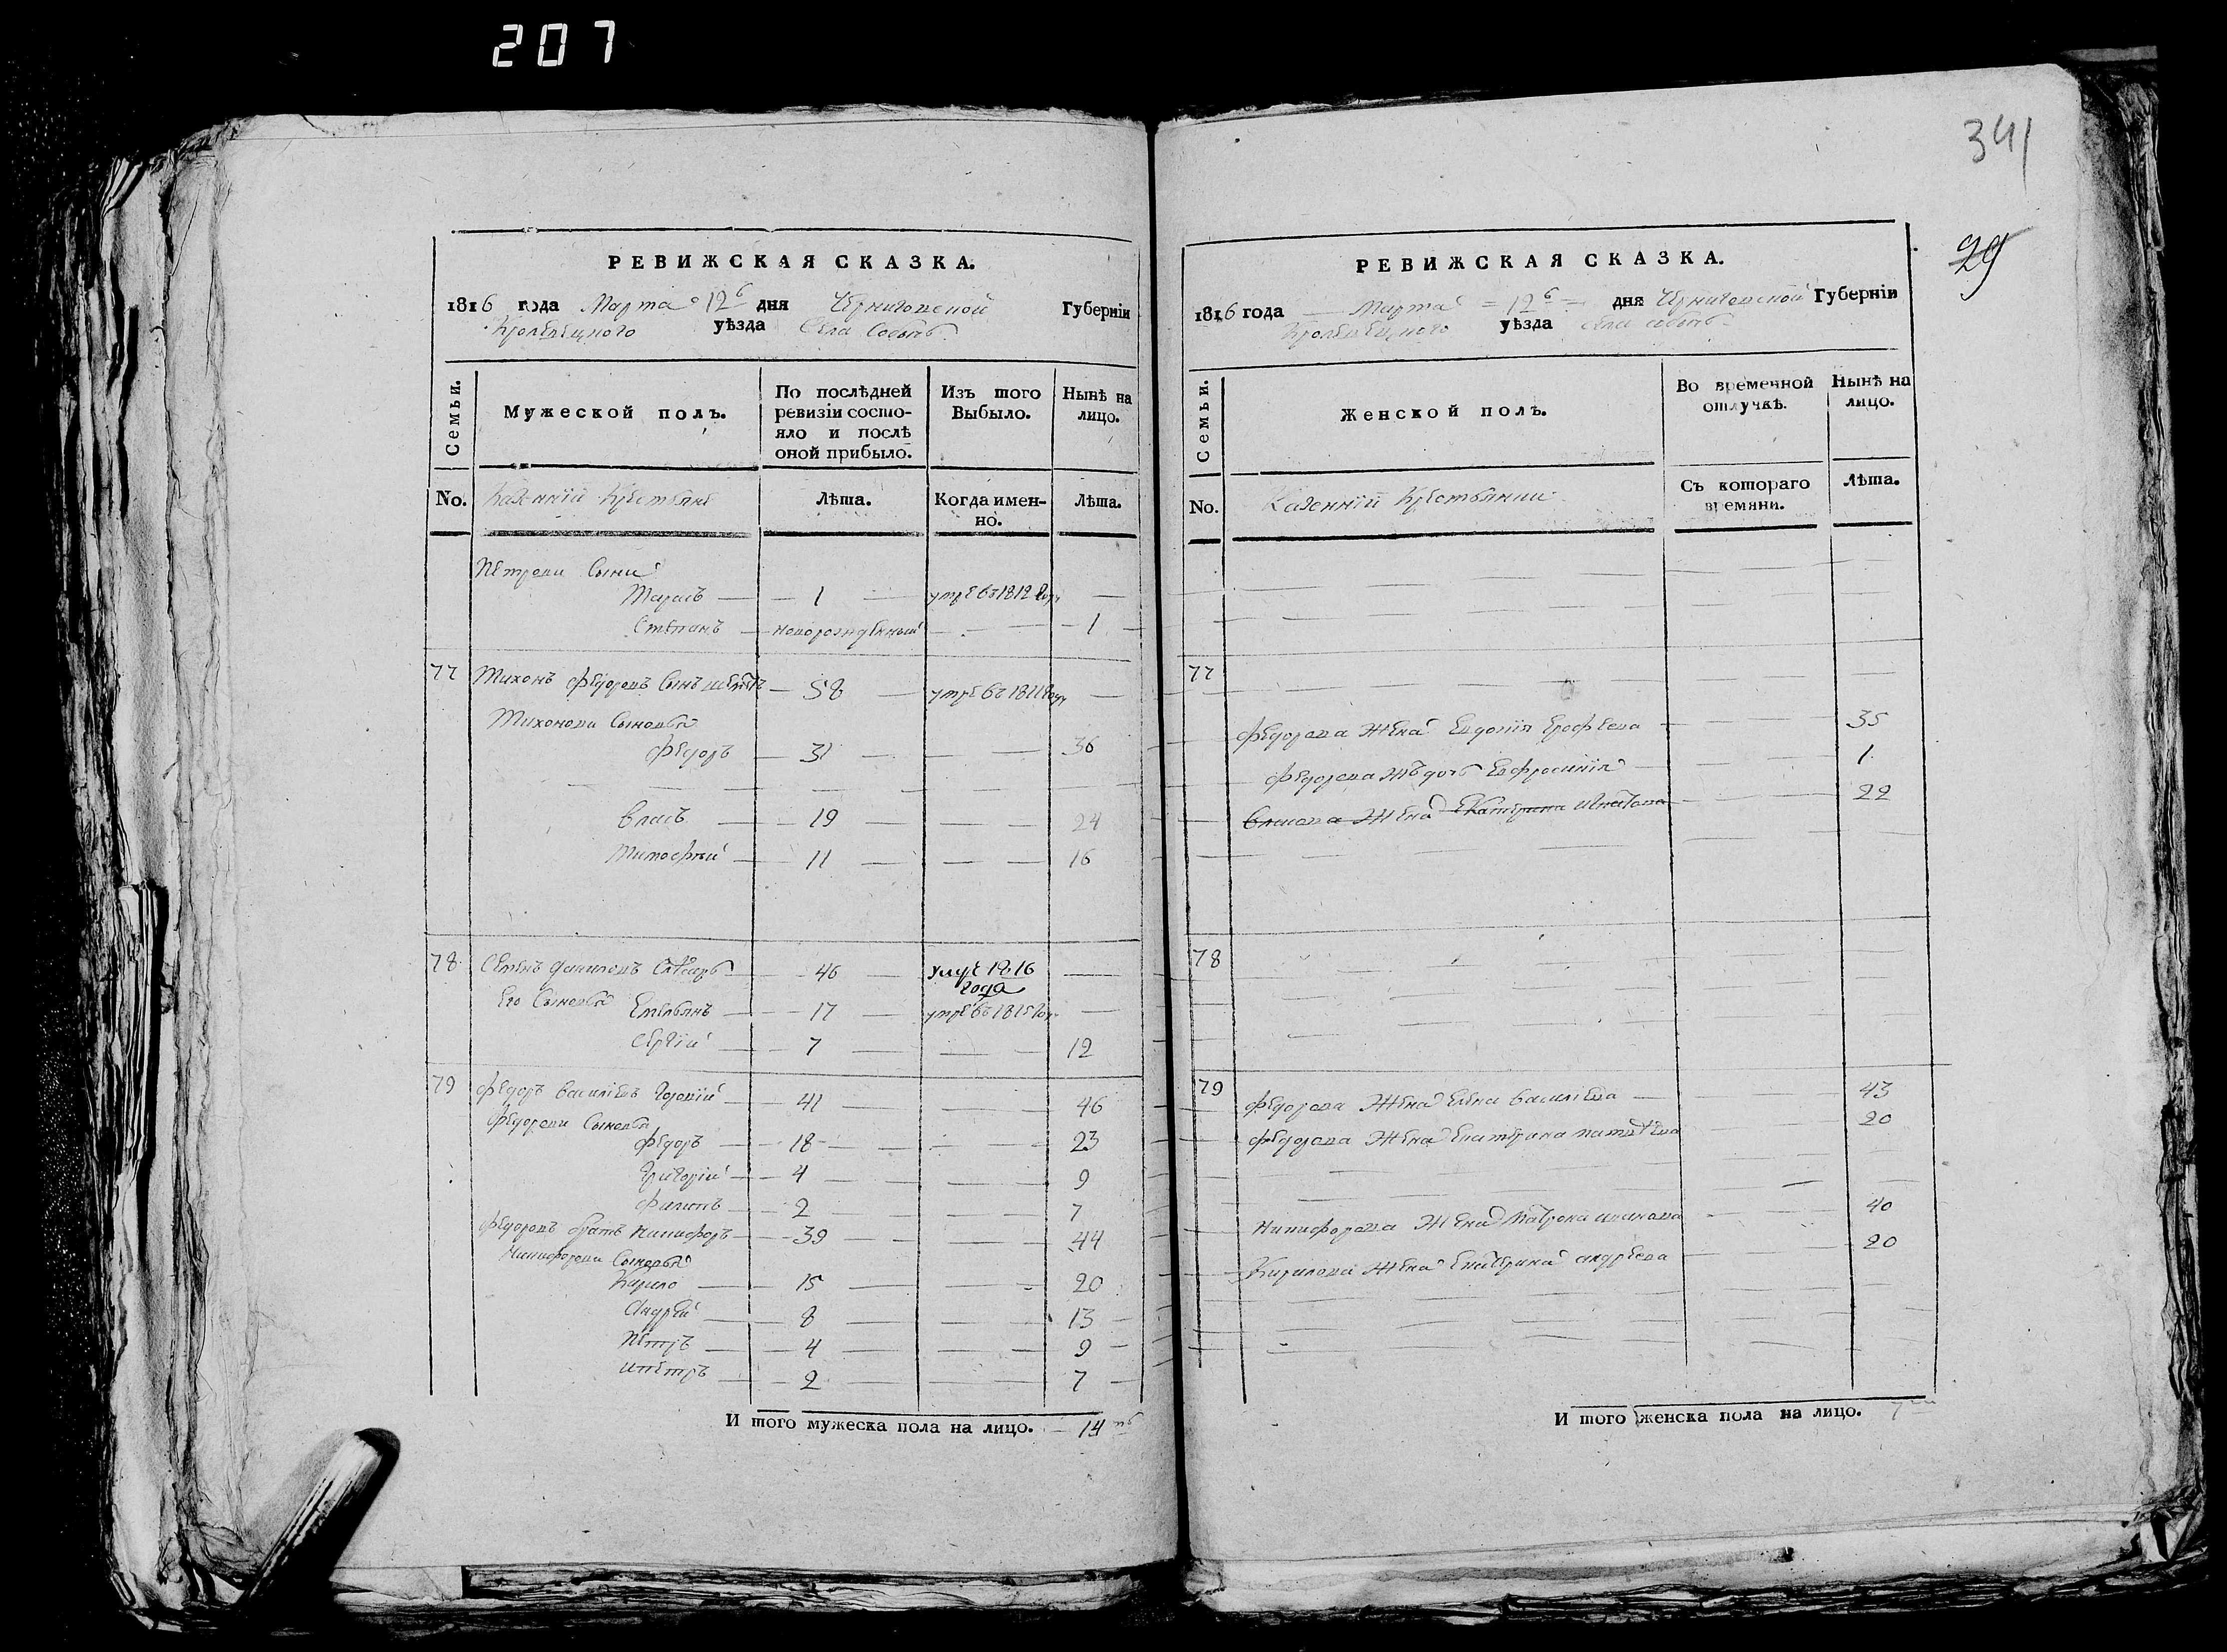 207
341
29
РЕВИЖСКАЯ СКАЗКА.
1816 года Марта 12 дня Черниговской Губерніи
Кролевецкого уѣзда Села Собычь
Семьи.
Мужеской полъ.
По послѣдней ревизіи состояло и послѣ оной прибыло.
Изъ того Выбыло.
Нынѣ на лицо.
No. Казенніи Крестьяне
Лѣта.
Когда именно.
Лѣта.
Петрови Сыни
Тарасъ 1 умре въ 1812 году
Степанъ новорожденный 1
77 Тихонъ Федоровъ Сынъ 58 умре въ 1811 году
Тихонови Сыновья
Федоръ 31 36
Власъ 19 24
Тимофей 11 16
78 Семенъ Даниловъ 46 1816 года
Его Сыновья Емельянъ 17 умре въ 1815 году
Сергій 7 12
79 Федоръ Василіевъ 41 46
Федорови Сыновья
Федоръ 18 23
Григорій 4 9
Филипъ 2 7
Федоровъ братъ Никифоръ 39 44
Никифорови Сыновья
Кирило 15 20
Андрей 8 13
Петръ 4 9
и Петръ 2 7
И того мужеска пола на лицо. 14
РЕВИЖСКАЯ СКАЗКА.
1816 года Марта 12 дня Черниговской Губерніи
Кролевецкого уѣзда Села Собычь
Семьи.
Женской полъ.
Во временной отлучкѣ.
Нынѣ на лицо.
No. Казенніи Крестьянки
Съ котораго времяни.
Лѣта.
77
Федорова Жена Евдокія Ерофеева 35
Федорова дочь Евфросинія 1
Власова Жена Екатерина Игнатова 22
78
79 Федорова Жена Елена Василіева 43
Федорова Жена Екатерина 20
Никифорова Жена Матрона Иванова 40
Кирилова Жена Екатерина Андреева 20
И того женска пола на лицо. 7